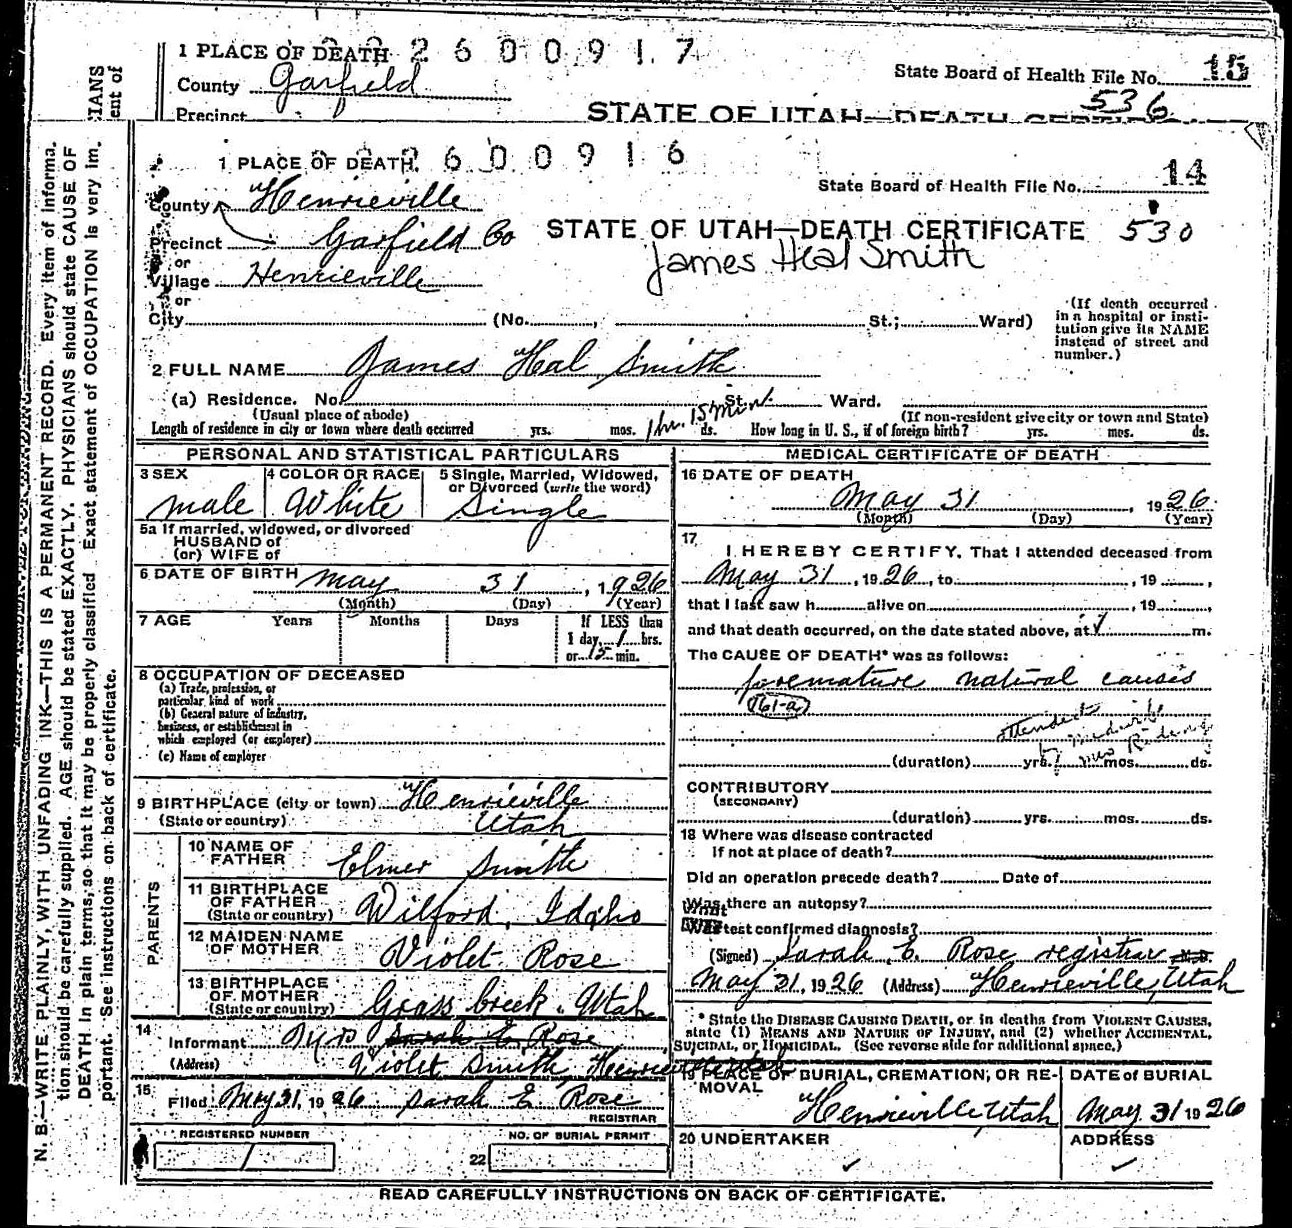 1 PLACE OF DEATH 2 6 0 0 9 1 7
County Garfield
State Board of Health File No.
536
Precinct
STATE OF UTAH—DEATH CERTIFI
1 PLACE OF DEATH 2 6 0 0 9 1 6
State Board of Health File No. 14
County Henrieville
Precinct Garfield Co
STATE OF UTAH—DEATH CERTIFICATE 530
James Heal Smith
or
Village Henrieville
or
City (No. , St.; Ward)
(If death occurred in a hospital or insti-
tution give its NAME
instead of street and
number.)
2 FULL NAME James Hal Smith
(a) Residence. No. St. Ward.
(Usual place of abode)
(If non-resident give city or town and State)
Length of residence in city or town where death occurred yrs. mos. 1 hr. 15 min. ds. How long in U. S., if of foreign birth? yrs. mos. ds.
PERSONAL AND STATISTICAL PARTICULARS
3 SEX male
4 COLOR OR RACE White
5 Single, Married, Widowed,
or Divorced (write the word)
Single
5a If married, widowed, or divorced
HUSBAND of
(or) WIFE of
6 DATE OF BIRTH May 31, 1926
(Month) (Day) (Year)
7 AGE Years Months Days If LESS than
1 day, 1 hrs.
or 15 min.
8 OCCUPATION OF DECEASED
(a) Trade, profession, or
particular kind of work
(b) General nature of industry,
business, or establishment in
which employed (or employer)
(c) Name of employer
9 BIRTHPLACE (city or town) Henrieville
(State or country) Utah
PARENTS
10 NAME OF
FATHER Elmer Smith
11 BIRTHPLACE
OF FATHER
(State or country) Wilford, Idaho
12 MAIDEN NAME
OF MOTHER Violet Rose
13 BIRTHPLACE
OF MOTHER
(State or country) Grass Creek, Utah
14
Informant Mrs Sarah E. Rose
(Address) Violet Smith Henrieville Utah
15
Filed May 31, 1926 Sarah E. Rose
REGISTRAR
REGISTERED NUMBER
1
NO. OF BURIAL PERMIT
22
MEDICAL CERTIFICATE OF DEATH
16 DATE OF DEATH
May 31, 1926
(Month) (Day) (Year)
17
I HEREBY CERTIFY, That I attended deceased from
May 31, 1926, to , 19 ,
that I last saw h alive on , 19 ,
and that death occurred, on the date stated above, at m.
The CAUSE OF DEATH* was as follows:
premature natural causes
161-a
attended
by midwife
Mrs
(duration) yrs. mos. ds.
CONTRIBUTORY
(SECONDARY)
(duration) yrs. mos. ds.
18 Where was disease contracted
If not at place of death?
Did an operation precede death? Date of
Was there an autopsy?
What test confirmed diagnosis?
(Signed) Sarah E. Rose registrar M.D.
May 31, 1926 (Address) Henrieville, Utah
* State the DISEASE CAUSING DEATH, or in deaths from VIOLENT CAUSES,
state (1) MEANS AND NATURE OF INJURY, and (2) whether ACCIDENTAL,
SUICIDAL, or HOMICIDAL. (See reverse side for additional space.)
19 PLACE OF BURIAL, CREMATION, OR RE-
MOVAL
Henrieville, Utah
DATE of BURIAL
May 31 1926
20 UNDERTAKER
ADDRESS
READ CAREFULLY INSTRUCTIONS ON BACK OF CERTIFICATE.
N. B.—WRITE PLAINLY, WITH UNFADING INK—THIS IS A PERMANENT RECORD. Every item of informa-
tion should be carefully supplied. AGE should be stated EXACTLY. PHYSICIANS should state CAUSE OF
DEATH in plain terms, so that it may be properly classified. Exact statement of OCCUPATION is very im-
portant. See instructions on back of certificate.
CIANS
ent of